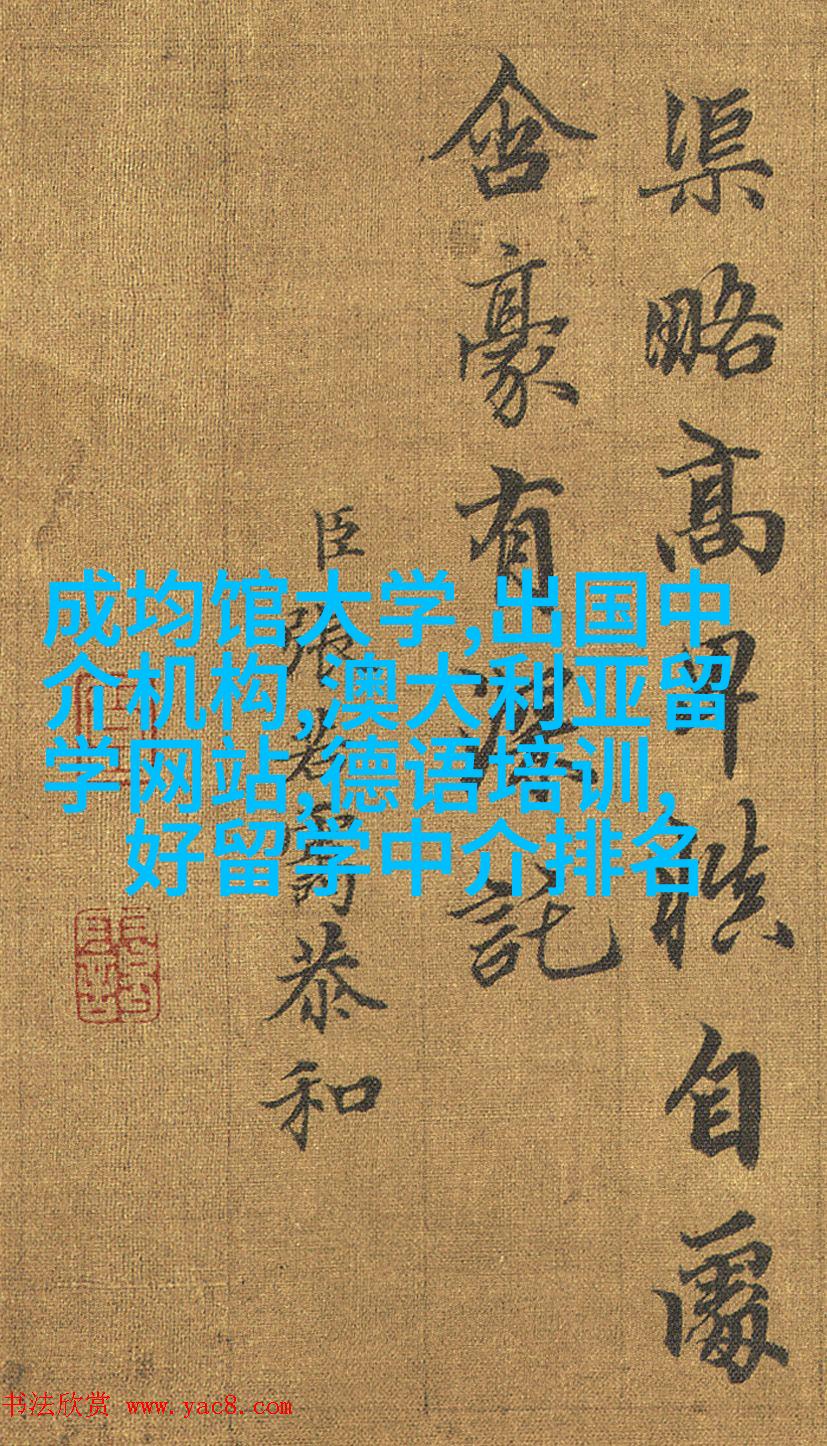 渠略高昇自
含豪有託
臣張若靄恭和
成均馆大学,出国中
介机构,澳大利亚留
学网站,德语培训,
好留学中介排名
书法欣赏 www.yac8.com